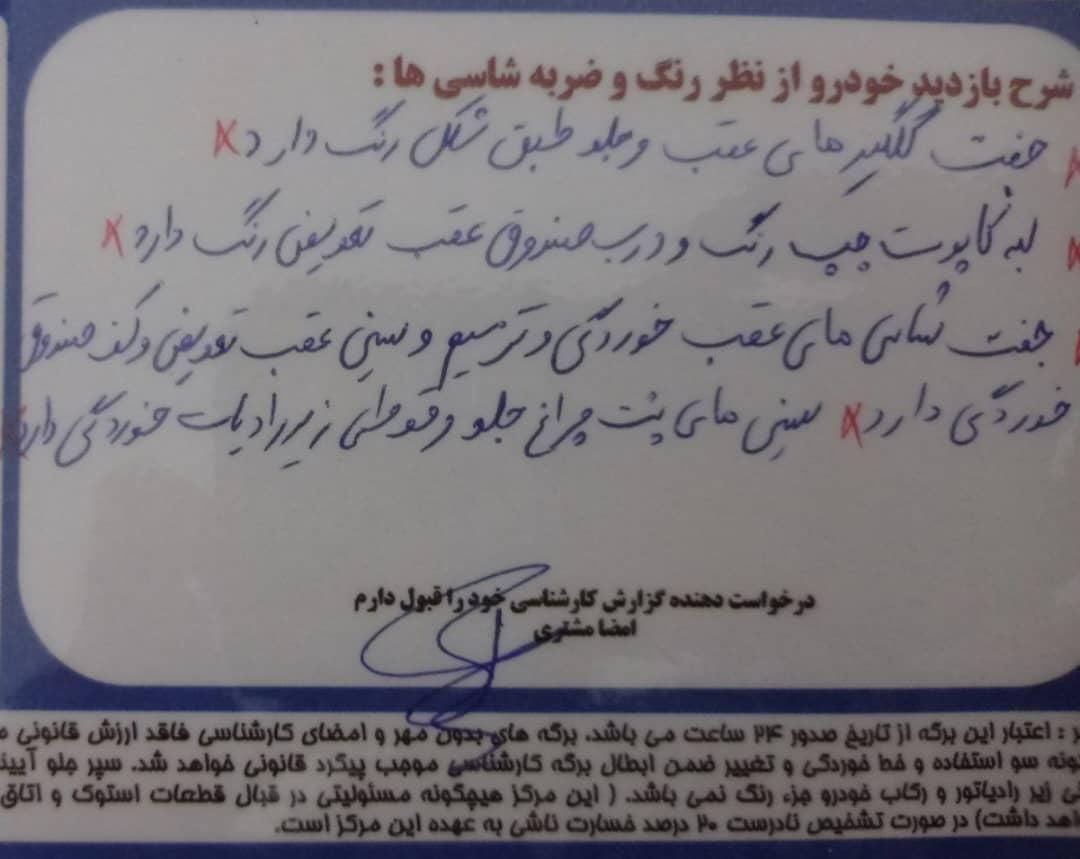 شرح بازدید خودرو از نظر رنگ و ضربه شاسی ها :
جفت گلگیر های عقب و جلو طبق شکل رنگ دارد x
لبه کاپوت چپ رنگ و درب صندوق عقب تعویض رنگ دارد x
جفت شاسی های عقب خوردگی و ترمیم و سینی عقب تعویض و کف صندوق
خوردگی دارد x سینی های پشت چراغ جلو و قوطی زیر رادیات خوردگی دارد
درخواست دهنده گزارش کارشناسی خود را قبول دارم
امضا مشتری
: اعتبار این برگه از تاریخ صدور ۲۴ ساعت می باشد. برگه های بدون مهر و امضای کارشناسی فاقد ارزش قانونی
گونه سو استفاده و خط خوردگی و تغییر ضمن ابطال برگه کارشناسی موجب پیگرد قانونی خواهد شد. سپر جلو
زیر رادیاتور و رکاب خودرو جزء رنگ نمی باشد. ( این مرکز هیچگونه مسئولیتی در قبال قطعات استوک و اتاق
داشت) در صورت تشخیص نادرست ۲۰ درصد خسارت ناشی به عهده این مرکز است.